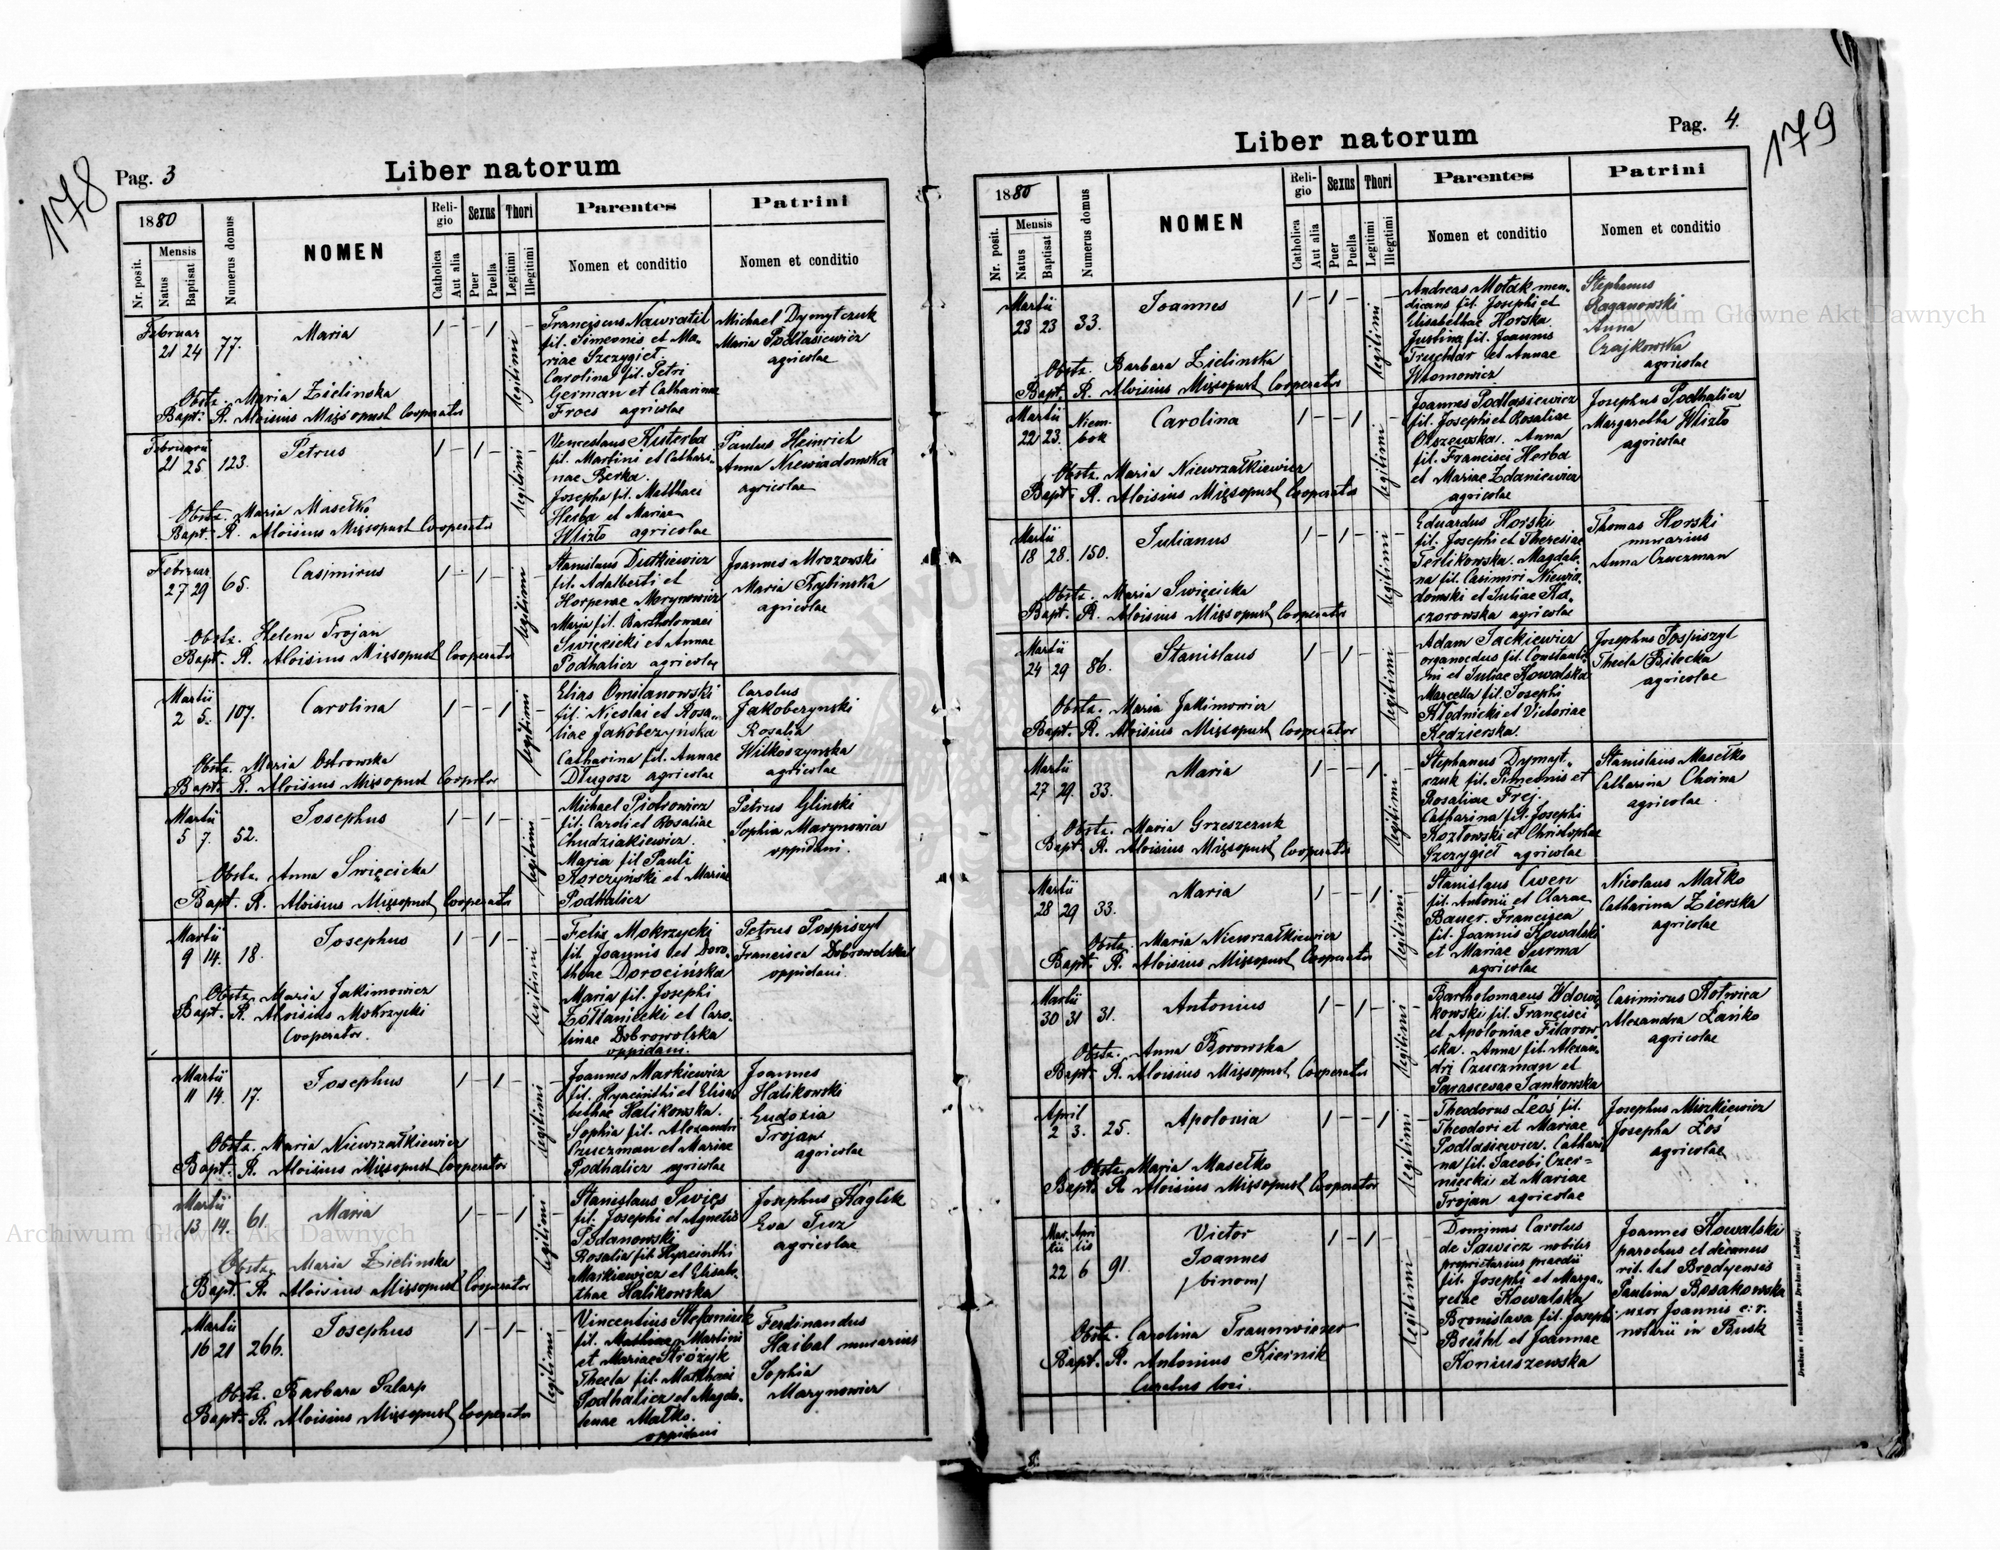 178
Pag. 3
Liber natorum
1880
Mensis
Nr. posit.
Natus
Baptisat
Numerus domus
NOMEN
Religio
Sexus
Thori
Catholica
Aut alia
Puer
Puella
Legitimi
Illegitimi
Parentes
Nomen et conditio
Patrini
Nomen et conditio
Februar
21 24 77. Maria 1 - - 1 - legitimi
Franciscus Nawratil
fil. Simeonis et Ma-
riae Szczygieł.
Carolina fil. Petri
German et Catharinae
Froes agricolae
Michael Dymytczuk
Maria Podlasiewicz
agricolae
Obstz. Maria Zielinska
Bapt. R. Aloisius Mięsopust Cooperator
Februarii
21 25 123. Petrus 1 - 1 - - legitimi
Venceslaus Kusterba
fil. Martini et Cathari-
nae Berka
Josepha fil. Matthaei
Herba et Mariae
Wlizło agricolae
Paulus Heinrich
Anna Niewiadomska
agricolae
Obstz. Maria Masełko
Bapt. R. Aloisius Mięsopust Cooperator
Februar
27 29 65. Casimirus 1 - 1 - - legitimi
Stanislaus Dutkiewicz
fil. Adalberti et
Horpenae Marynowicz
Maria fil. Bartholomaei
Swięcicki et Annae
Podhalicz agricolae
Joannes Mrozowski
Maria Rybinska
agricolae
Obstz. Helena Trojan
Bapt. R. Aloisius Mięsopust Cooperator
Martii
2 5. 107. Carolina 1 - - 1 - legitimi
Elias Omilanowski
fil. Nicolai et Rosa-
liae Jakobczynska
Catharina fil. Annae
Długosz agricolae
Carolus
Jakobczynski
Rosalia
Wilkoszynska
agricolae
Obstz. Maria Ostrowska
Bapt. R. Aloisius Mięsopust Cooprator
Martii
5 7. 52. Josephus 1 - 1 - - legitimi
Michael Piotrowicz
fil. Caroli et Rosaliae
Chudziakiewicz.
Maria fil Pauli
Korczyński et Mariae
Podhalicz
Petrus Glinski
Sophia Marynowicz
oppidani.
Obstz. Anna Swięcicka
Bapt. R. Aloisius Mięsopust Cooperator
Martii
9 14. 18. Josephus 1 - 1 - - legitimi
Felix Mokrzycki
fil. Joannis et Doro-
theae Dorocińska
Maria fil. Josephi
Żółtaniecki et Caro-
linae Dobrowolska
oppidani.
Petrus Pospiszyl
Francisca Dobrowolska
oppidani.
Obstz. Maria Jakimowicz
Bapt. R. Aloisius Mokrzycki
Cooperator.
Martii
11 14. 17. Josephus 1 - 1 - - legitimi
Joannes Markiewicz
fil. Hyacinthi et Elisa-
bethae Halikowska.
Sophia fil. Alexandri
Czuczman et Mariae
Podhalicz agricolae
Joannes
Halikowski
Eudoxia
Trojan
agricolae
Obstz. Maria Niewrzałkiewicz
Bapt. R. Aloisius Mięsopust Cooperator
Martii
13 14. 61. Maria 1 - - 1 - legitimi
Stanislaus Swięs
fil. Josephi et Agnetis
Bodanowski
Rosalia fil. Hyacinthi
Markiewicz et Elisabe-
thae Halikowska
Josephus Haglik
Eva Tuz
agricolae
Obstz. Maria Zielinska
Bapt. R. Aloisius Mięsopust Cooperator
Martii
16 21 266. Josephus 1 - 1 - - legitimi
Vincentius Stefaniuk
fil. Martini
et Mariae Stróżyk
Thecla fil. Matthaei
Podhalicz et Magda-
lenae Małko.
oppidani
Ferdinandus
Haibal murarius
Sophia
Marynowicz
Obstz. Barbara Szlarp
Bapt. R. Aloisius Mięsopust Cooperator
179
Pag. 4.
Liber natorum
1880
Mensis
Nr. posit.
Natus
Baptisat
Numerus domus
NOMEN
Religio
Sexus
Thori
Catholica
Aut alia
Puer
Puella
Legitimi
Illegitimi
Parentes
Nomen et conditio
Patrini
Nomen et conditio
Martii
23 23 33. Joannes 1 - 1 - - legitimi
Andreas Motak men-
dicans fil. Josephi et
Elisabethae Horska.
Justina fil. Joannis
Truchlar et Annae
Wtomowicz
Stephanus
Raganowski
Anna
Czajkowska
agricolae
Obstz. Barbara Zielinska
Bapt. R. Aloisius Mięsopust Cooperator
Martii
22 23. Niem-
bok Carolina 1 - - 1 - legitimi
Joannes Podlasiewicz
fil. Josephi et Rosaliae
Olszewska. Anna
fil. Francisci Herba
et Mariae Zdaniewicz
agricolae
Josephus Podhalicz
Margaretha Wlizło
agricolae
Obstz. Maria Niewrzałkiewicz
Bapt. R. Aloisius Mięsopust Cooperator
Martii
18 28. 150. Julianus 1 - 1 - - legitimi
Eduardus Horski
fil. Josephi et Theresiae
Terlikowska. Magdale-
na fil. Casimiri Niewia-
domski et Juliae Ka-
czorowska agricolae
Thomas Horski
murarius
Anna Czuczman
Obstz. Maria Swięcicka
Bapt. R. Aloisius Mięsopust Cooperator
Martii
24 29 86. Stanislaus 1 - 1 - - legitimi
Adam Jackiewicz
organoedus fil. Constanti-
ni et Juliae Kowalska
Marcella fil. Josephi
Kłodnicki et Victoriae
Kędzierska.
Josephus Pospiszyl
Thecla Bilecka
agricolae
Obstz. Maria Jakimowicz
Bapt. R. Aloisius Mięsopust Cooperator
Martii
27 29. 33. Maria 1 - - 1 - legitimi
Stephanus Dymyt-
czuk fil. Simeonis et
Rosaliae Frej.
Catharina fil. Josephi
Kozłowski et Christophae
Szczygieł agricolae
Stanislaus Masełko
Catharina Choina
agricolae.
Obstz. Maria Grzeszczuk
Bapt. R. Aloisius Mięsopust Cooperator
Martii
28 29 33. Maria 1 - - 1 - legitimi
Stanislaus Cwen
fil. Antonii et Clarae
Bauer. Francisca
fil. Joannis Kowalski
et Mariae Surma
agricolae
Nicolaus Małko
Catharina Zierska
agricolae
Obstz. Maria Niewrzałkiewicz
Bapt. R. Aloisius Mięsopust Cooperator
Martii
30 31 31. Antonius 1 - 1 - - legitimi
Bartholomaeus Wdowi-
kowski fil. Francisci
et Apoloniae Fidarow-
ska. Anna fil. Alexan-
dri Czuczman et
Parascevae Jankowska
Casimirus Kotwica
Alexandra Łanko
agricolae
Obstz. Anna Borowska
Bapt. R. Aloisius Mięsopust Cooperator
April
2 3. 25. Apolonia 1 - - 1 - legitimi
Theodorus Łoś fil.
Theodori et Mariae
Podlasiewicz. Cathari-
na fil. Jacobi Czer-
niecki et Mariae
Trojan agricolae
Josephus Miszkiewicz
Josepha Łoś
agricolae
Obstz. Maria Masełko
Bapt. R. Aloisius Mięsopust Cooperator
Mar- Apri
tii lis
22 6 91. Victor
Joannes
/binom/ 1 - 1 - legitimi
Dominus Carolus
de Sawicz nobilis
proprietarius praedii
fil. Josephi et Marga-
retae Kowalska
Bronislava fil. Josephi
Breiht et Joannae
Koniuszewska
Joannes Kowalski
parochus et decanus
rit. lat Brodyensis
Paulina Bosakowska
uxor Joannis c. r.
notarii in Busk
Obstz. Carolina Traunwieser
Bapt. R. Antonius Kiernik
Curatus loci.
Drukiem i nakładem Drukarni Ludowej.
8.
Archiwum Główne Akt Dawnych
Archiwum Główne Akt Dawnych